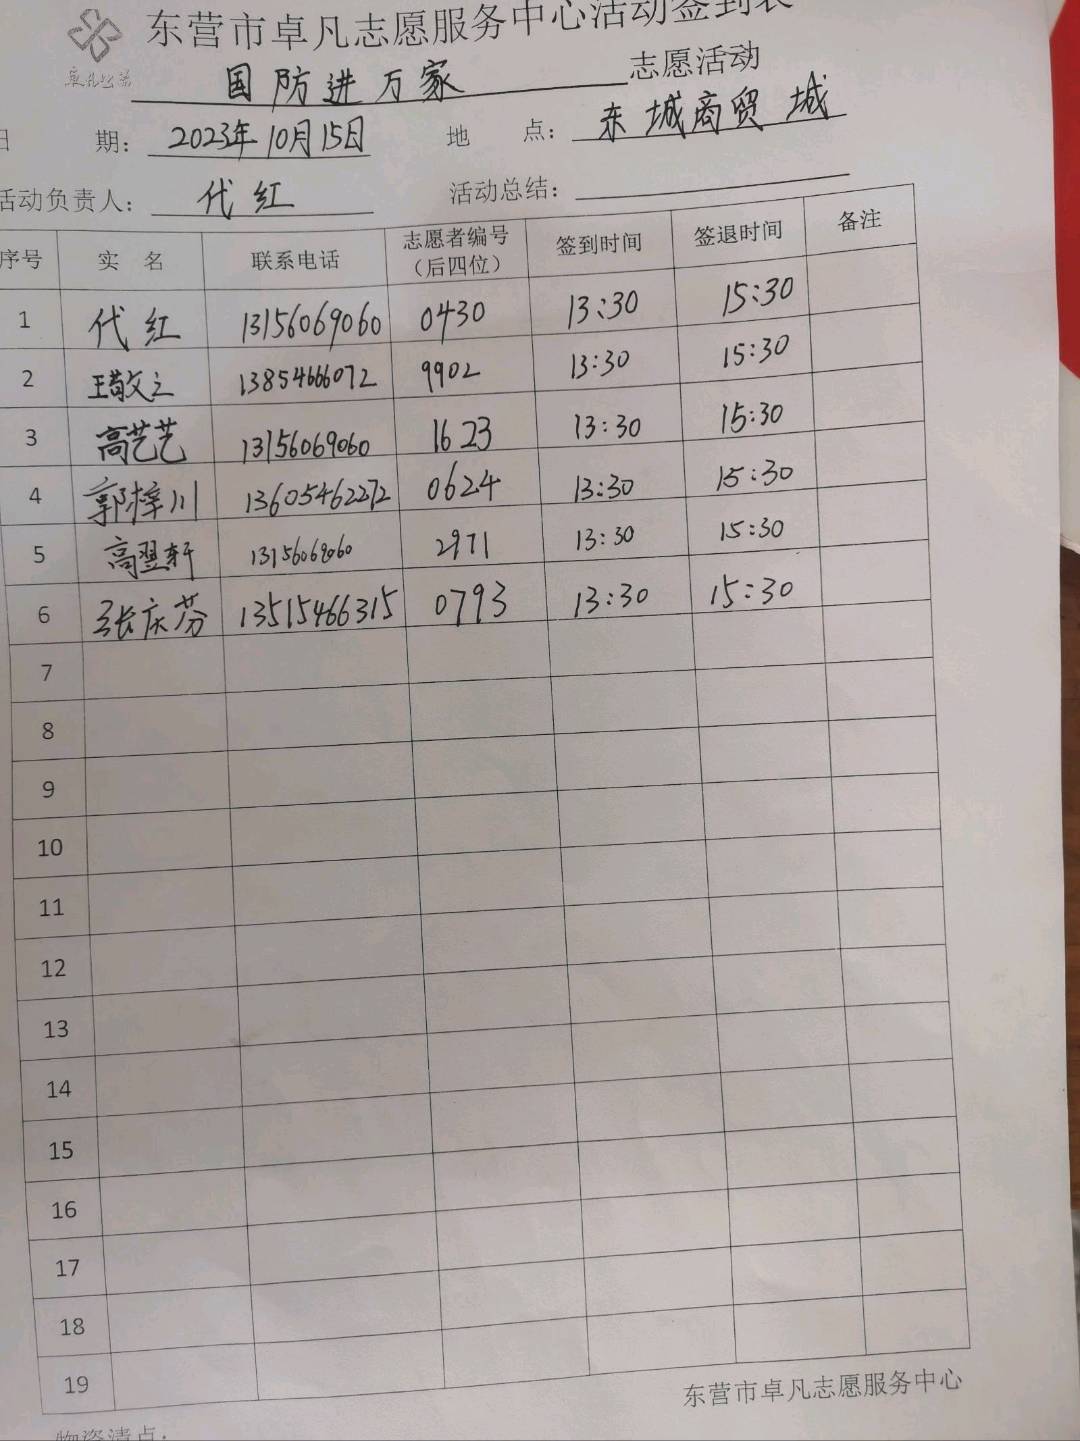 东营市卓凡志愿服务中心活动签到表
卓凡公益
国防进万家 志愿活动
日 期： 2023年10月15日 地 点： 东城商贸城
活动负责人： 代红 活动总结：
序号 实 名 联系电话 志愿者编号（后四位） 签到时间 签退时间 备注
1 代红 13156069060 0430 13:30 15:30
2 王敬文 13854666072 9902 13:30 15:30
3 高艺艺 13156069060 1623 13:30 15:30
4 郭梓川 13605462272 0624 13:30 15:30
5 高翌轩 13156069060 2971 13:30 15:30
6 张庆芬 13515466315 0793 13:30 15:30
7
8
9
10
11
12
13
14
15
16
17
18
19
东营市卓凡志愿服务中心
物资清点：